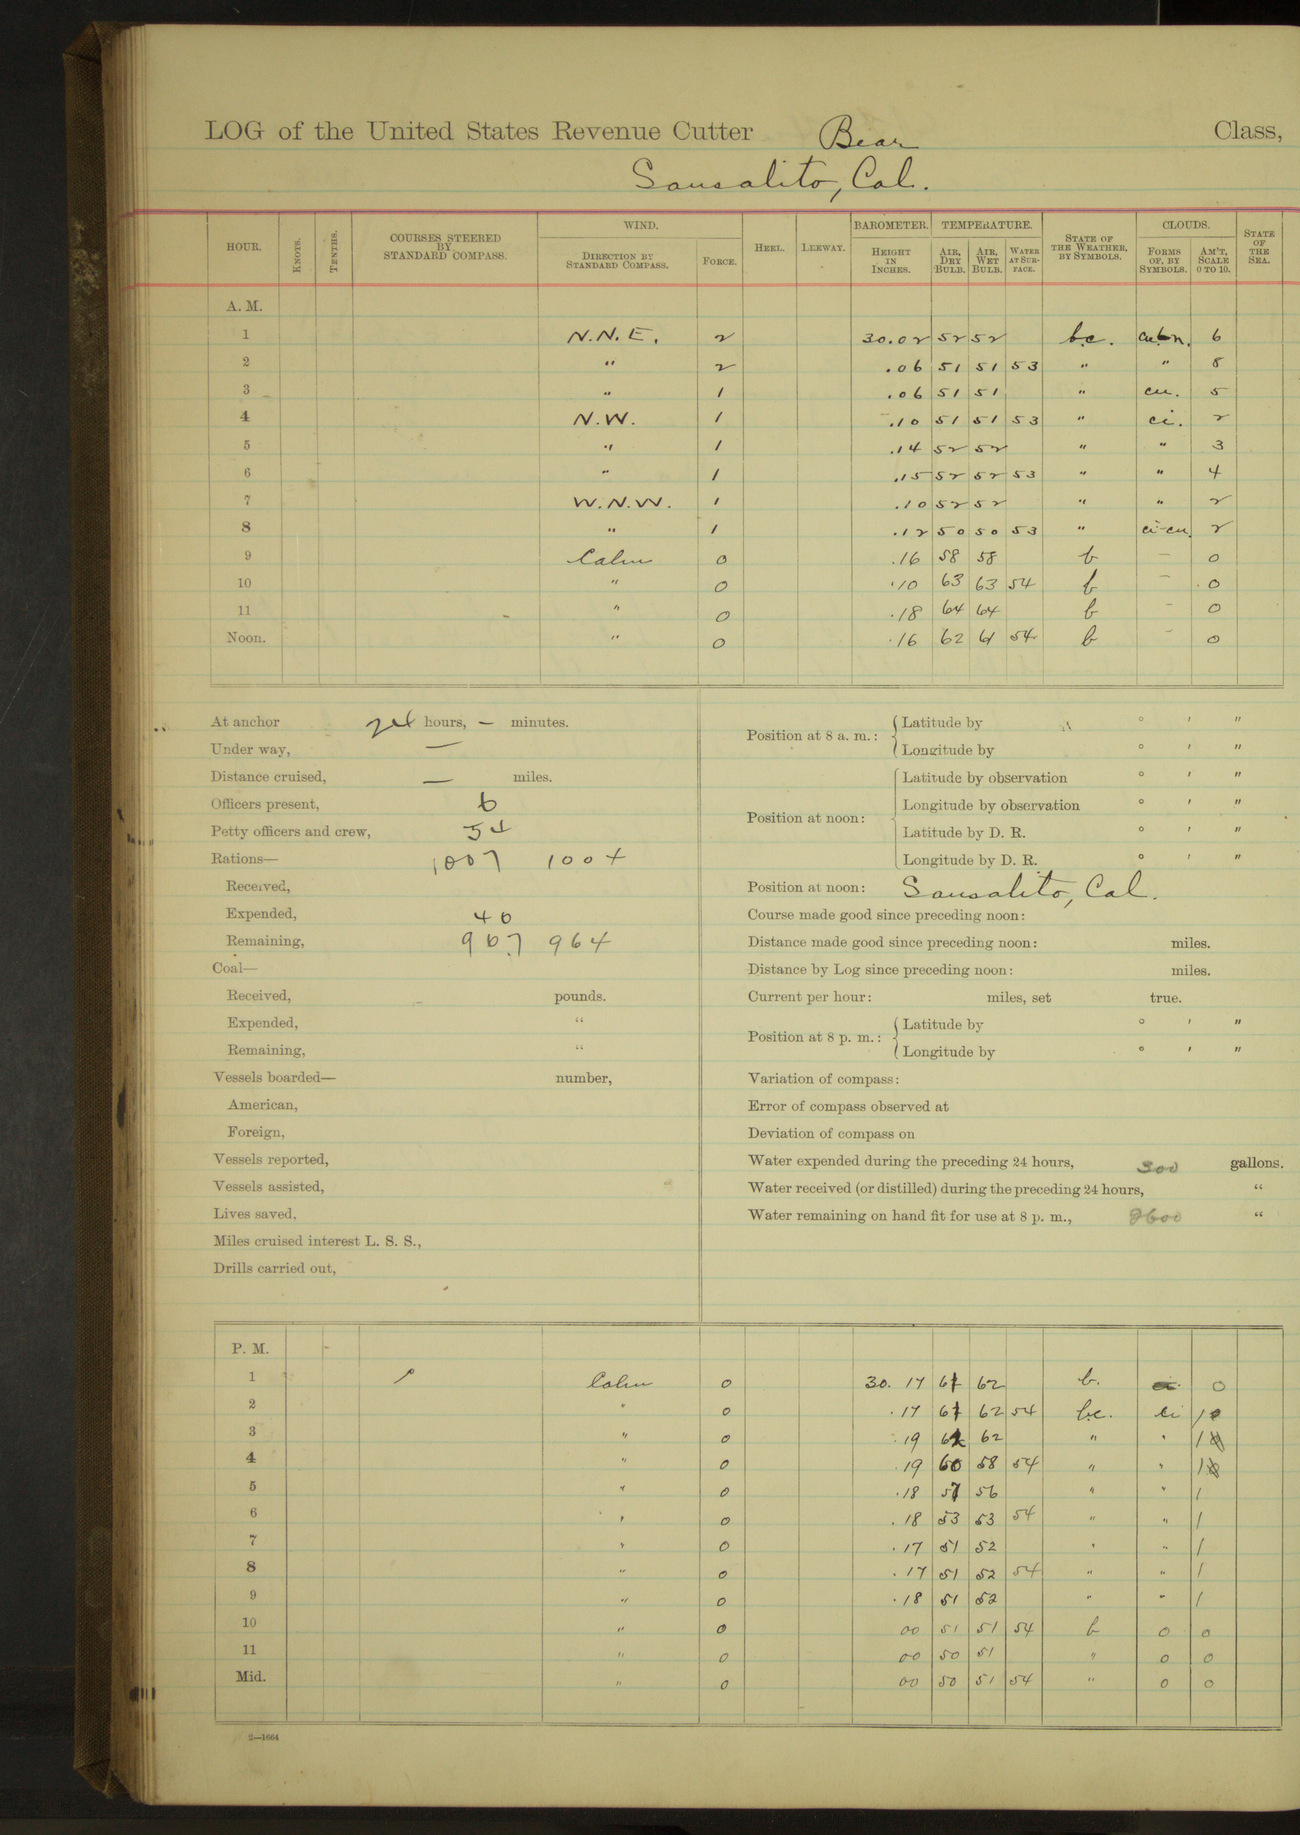 LOG of the United States Revenue Cutter Bear Class,
Sausalito, Cal.
HOUR. KNOTS. TENTHS. COURSES STEERED BY STANDARD COMPASS. WIND. DIRECTION BY STANDARD COMPASS. FORCE. HEEL. LEEWAY. BAROMETER. HEIGHT IN INCHES. TEMPERATURE. AIR, DRY BULB. AIR, WET BULB. WATER AT SURFACE. STATE OF THE WEATHER, BY SYMBOLS. CLOUDS. FORMS OF, BY SYMBOLS. AM'T, SCALE 0 TO 10. STATE OF THE SEA.
A. M.
1 N.N.E. 2 30.02 52 52 b.c. 6
2 " 2 .06 51 51 53 " " 8
3 " 1 .06 51 51 " cu. 5
4 N.W. 1 .10 51 51 53 " ci. 2
5 " 1 .14 52 52 " " 3
6 " 1 .15 52 52 53 " " 4
7 W.N.W. 1 .10 52 52 " " 2
8 " 1 .12 50 50 53 " ci-cu. 2
9 Calm 0 .16 58 58 b — 0
10 " 0 .10 63 63 54 b — 0
11 " 0 .18 64 64 b — 0
Noon. " 0 .16 62 61 54 b — 0
At anchor 24 hours, — minutes.
Under way, —
Distance cruised, — miles.
Officers present, 6
Petty officers and crew, 34
Rations— 1007 1004
Received,
Expended, 40
Remaining, 967 964
Coal—
Received, pounds.
Expended, "
Remaining, "
Vessels boarded— number,
American,
Foreign,
Vessels reported,
Vessels assisted,
Lives saved,
Miles cruised interest L. S. S.,
Drills carried out,
Position at 8 a. m.: Latitude by ° ′ ″
Longitude by ° ′ ″
Position at noon: Latitude by observation ° ′ ″
Longitude by observation ° ′ ″
Latitude by D. R. ° ′ ″
Longitude by D. R. ° ′ ″
Position at noon: Sausalito, Cal.
Course made good since preceding noon:
Distance made good since preceding noon: miles.
Distance by Log since preceding noon: miles.
Current per hour: miles, set true.
Position at 8 p. m.: Latitude by ° ′ ″
Longitude by ° ′ ″
Variation of compass:
Error of compass observed at
Deviation of compass on
Water expended during the preceding 24 hours, 300 gallons.
Water received (or distilled) during the preceding 24 hours, "
Water remaining on hand fit for use at 8 p. m., 2600 "
P. M.
1 Calm 0 30.17 61 62 b. 0
2 " 0 .17 61 62 54 b.c. ci 1
3 " 0 .19 62 62 " " 1
4 " 0 .19 60 58 54 " " 1
5 " 0 .18 57 56 " " 1
6 " 0 .18 53 53 54 " " 1
7 " 0 .17 51 52 " " 1
8 " 0 .17 51 52 54 " " 1
9 " 0 .18 51 52 " " 1
10 " 0 00 51 51 54 b 0 0
11 " 0 00 50 51 " 0 0
Mid. " 0 00 50 51 54 " 0 0
2—1664